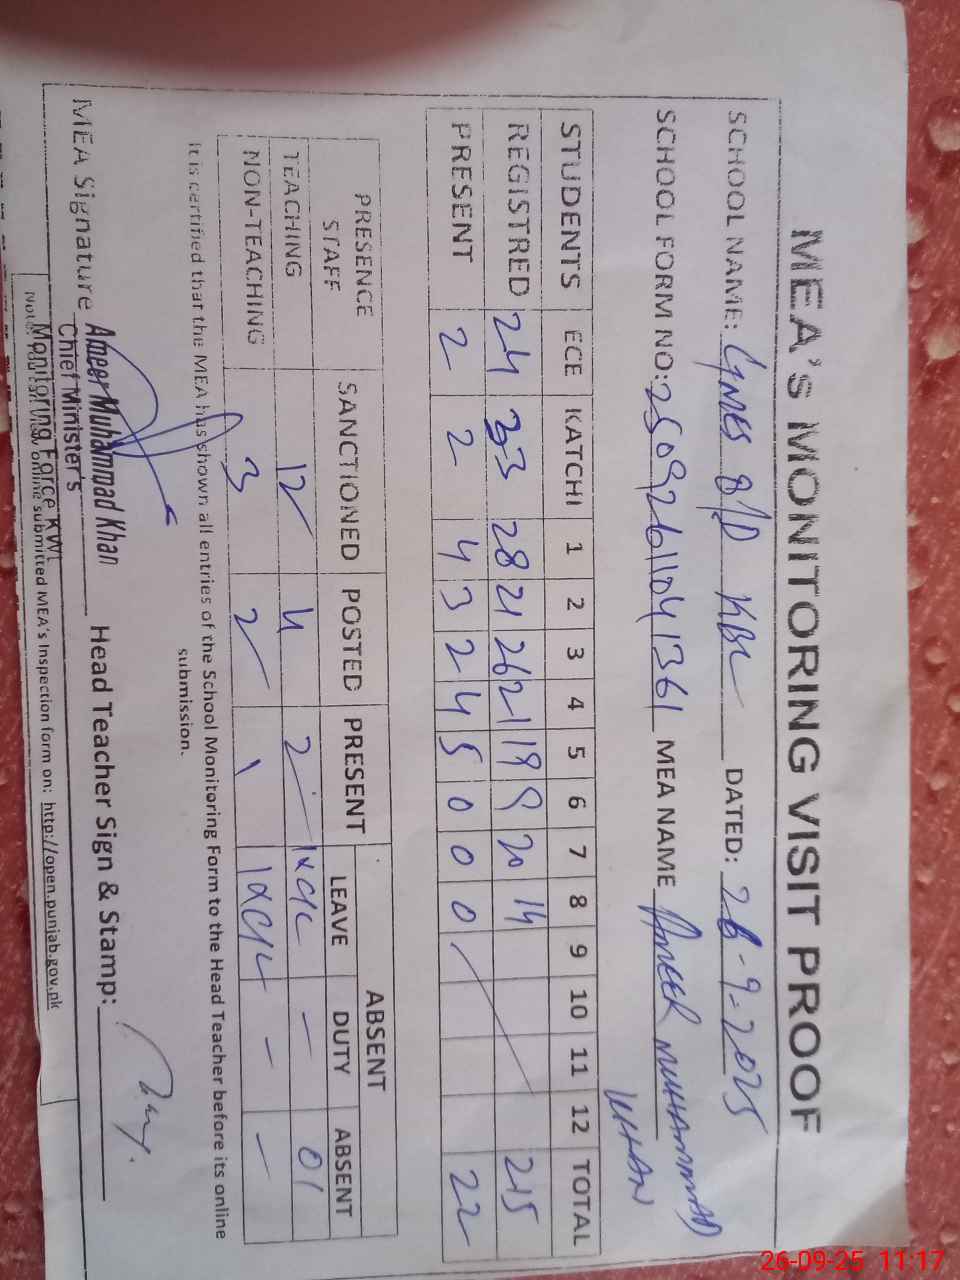 MEA's MONITORING VISIT PROOF
SCHOOL NAME: GMES 8/D KBL DATED: 26-9-2025
SCHOOL FORM NO: 25092611041361 MEA NAME AMEER MUHAMMAD KHAN
STUDENTS ECE KATCHI 1 2 3 4 5 6 7 8 9 10 11 12 TOTAL
REGISTRED 24 33 28 21 26 21 19 9 20 14 215
PRESENT 2 2 4 3 2 4 5 0 0 0 22
PRESENCE STAFF SANCTIONED POSTED PRESENT ABSENT
LEAVE DUTY ABSENT
TEACHING 12 4 2 1xC/L - 01
NON-TEACHING 3 2 1 1xC/L - -
It is certified that the MEA has shown all entries of the School Monitoring Form to the Head Teacher before its online
submission.
MEA Signature Head Teacher Sign & Stamp:
Ameer Muhammad Khan
Chief Minister's
Monitoring Force KWL
Note: view online submitted MEA's Inspection form on: http://open.punjab.gov.pk
26-09-25 11:17